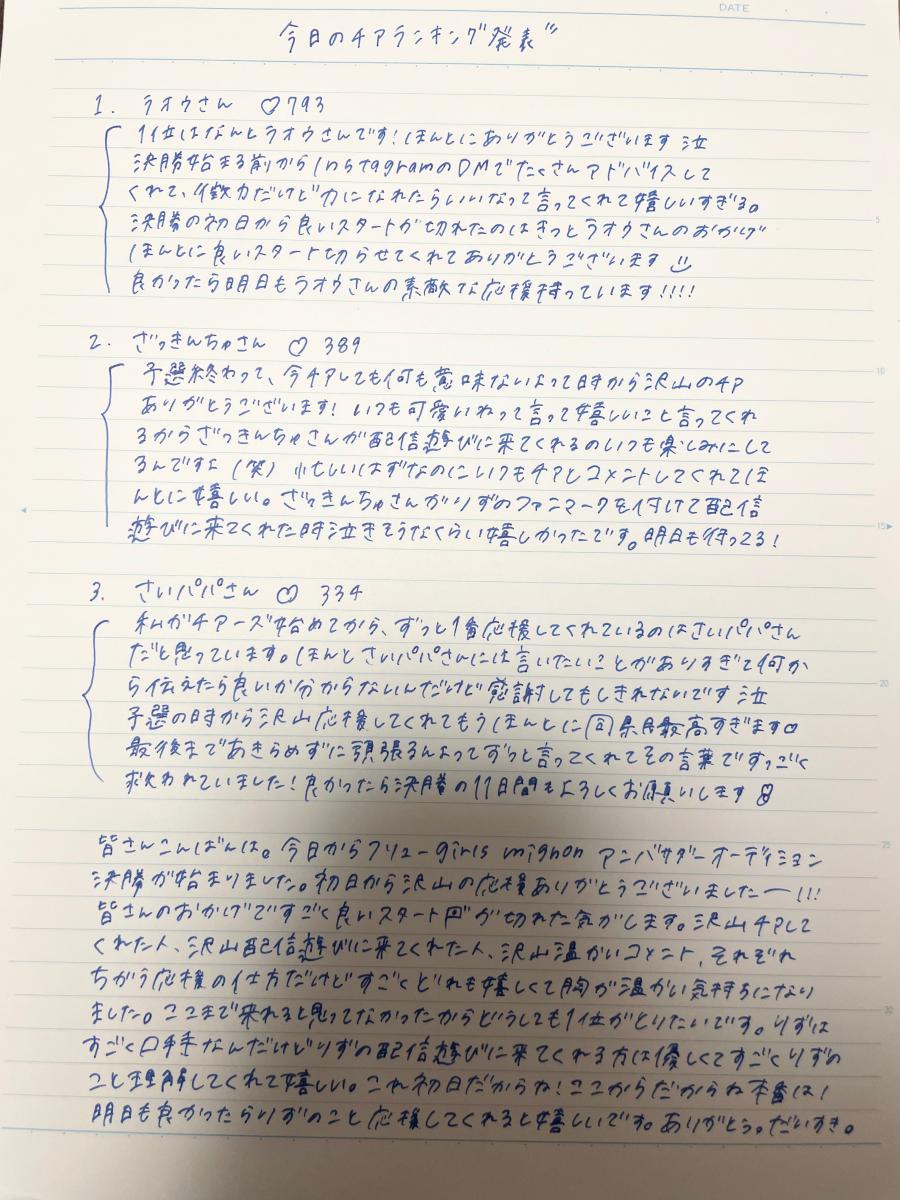 DATE
今日のチアランキング発表
1. ラオウさん ♡793
1位はなんとラオウさんです!ほんとにありがとうございます 泣
決勝始まる前からInstagramのDMでたくさんアドバイスして
くれて、微力だけど力になれたらいいなって言ってくれて嬉しいすぎる。
決勝の初日から良いスタートが切れたのはきっとラオウさんのおかげ
ほんとに良いスタート切らせてくれてありがとうございます
良かったら明日もラオウさんの素敵な応援待っています!!!!
5
2. ざっきんちゅさん ♡ 389
予選終わって、今チアしても何も意味ないよって時から沢山のチア
10
ありがとうございます! いつも可愛いねって言って嬉しいこと言ってくれ
るからざっきんちゅさんが配信遊びに来てくれるのいつも楽しみにして
るんですよ(笑) 忙しいはずなのにいつもチアとコメントしてくれてほ
んとに嬉しい。ざっきんちゅさんがりずのファンマークを付けて配信
遊びに来てくれた時泣きそうなくらい嬉しかったです。明日も待ってる!
15
3. さいパパさん ♡ 334
私がチアーズ始めてから、ずっと1番応援してくれているのはさいパパさん
だと思っています。ほんとさいパパさんには言いたいことがありすぎて何か
ら伝えたら良いか分からないんだけど感謝してもしきれないです 泣
20
予選の時から沢山応援してくれてもうほんとに同県民最高すぎます♡
最後まであきらめずに頑張るんよってずっと言ってくれてその言葉ですっごく
救われていました!良かったら決勝の11日間もよろしくお願いします
皆さんこんばんは。今日からフリューgirls mignon アンバサダーオーディション
25
決勝が始まりました。初日から沢山の応援ありがとうございましたー!!!
皆さんのおかげですごく良いスタートが切れた気がします。沢山チアして
くれた人、沢山配信遊びに来てくれた人、沢山温かいコメント、それぞれ
ちがう応援の仕方だけどすごくどれも嬉しくて胸が温かい気持ちになり
ました。ここまで来れると思ってなかったからどうしても1位がとりたいです。りずは
30
すごく口下手なんだけどりずの配信遊びに来てくれる方は優しくてすごくりずの
こと理解してくれて嬉しい。これ初日だからね!ここからだからね本番は!
明日も良かったらりずのこと応援してくれると嬉しいです。ありがとう。だいすき。